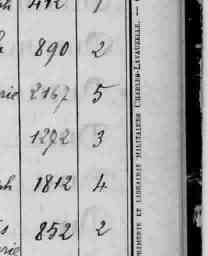 ph 412 1
890 2
rie 2167 5
1292 3
ph 1812 4
s 852 2
erie
PRIMERIE ET LIBRAIRIE MILITAIRES CHARLES-LAVAUZELLE. —